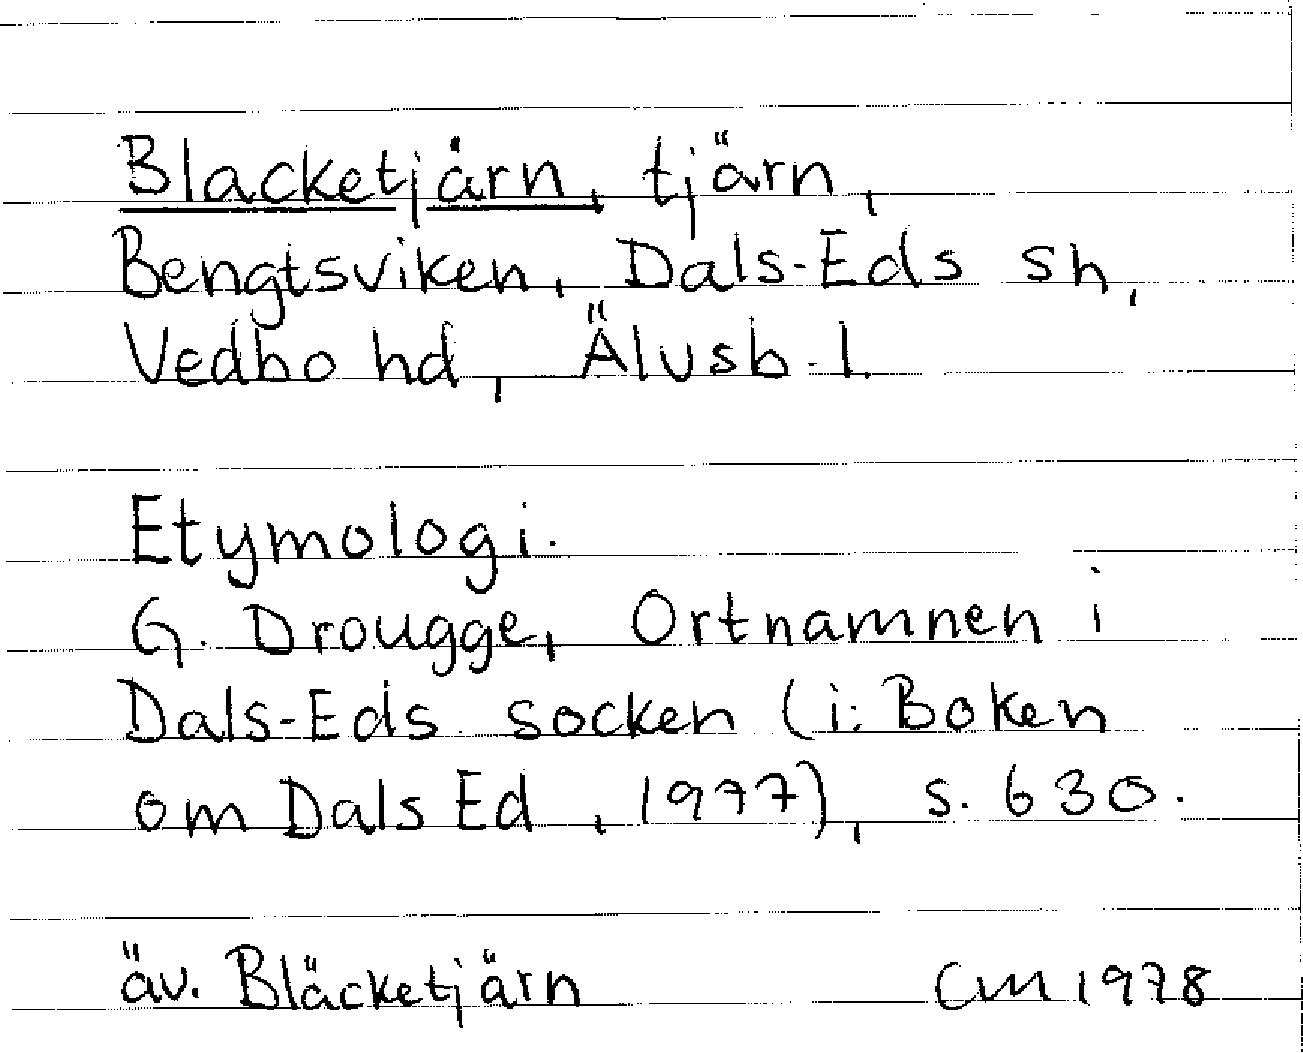 Blacketjärn, tjärn,
Bengtsviken, Dals-Eds sn,
Vedbo hd, Älvsb. l.
Etymologi.
G. Drougge, Ortnamnen i
Dals-Eds socken (i: Boken
om Dals Ed, 1977), s. 630.
äv. Bläcketjärn CM 1978